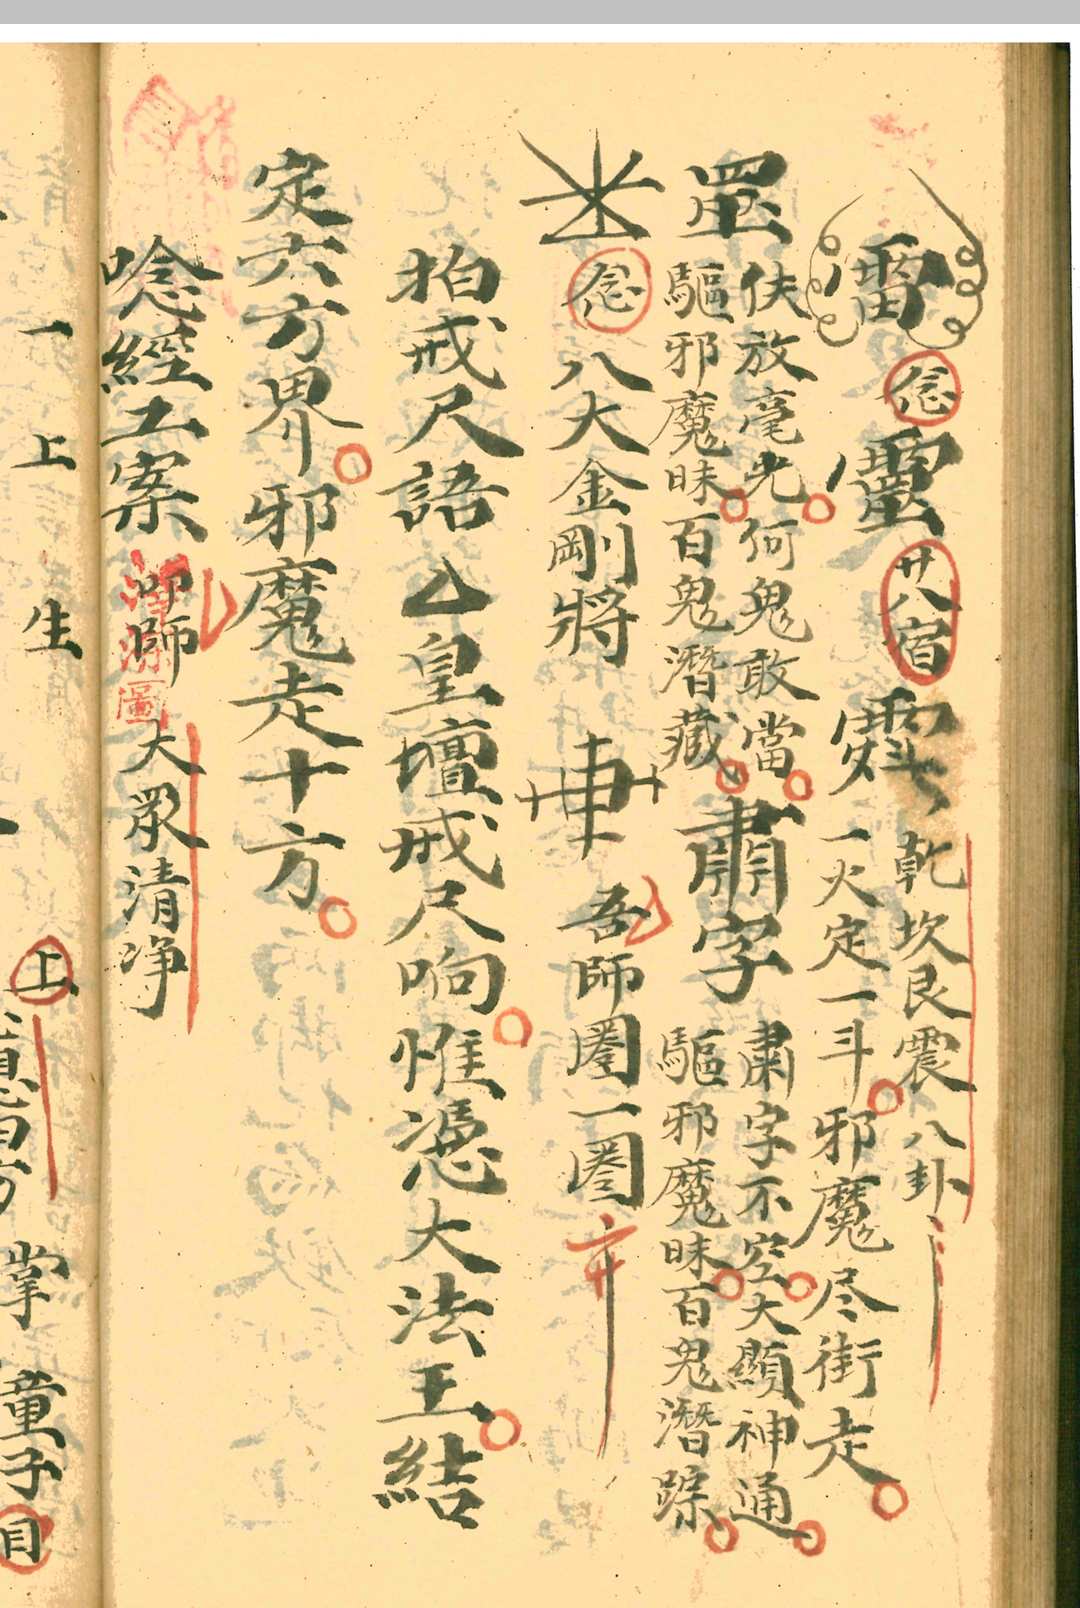 雷 念 靈 廿八宿 乾坎艮震八卦
一火定一斗邪魔尽街走
罡 伏放毫光何鬼敢當 肅字 肅字不空大顯神通
驅邪魔昧百鬼潛藏 驅邪魔昧百鬼潛踪
念八大金剛將 吾師圈一圈
拍戒尺語 皇壇戒尺响惟憑大法王結
定六方界邪魔走十方
唸經工案 卩師 大眾清净
一上生上
掌童子目